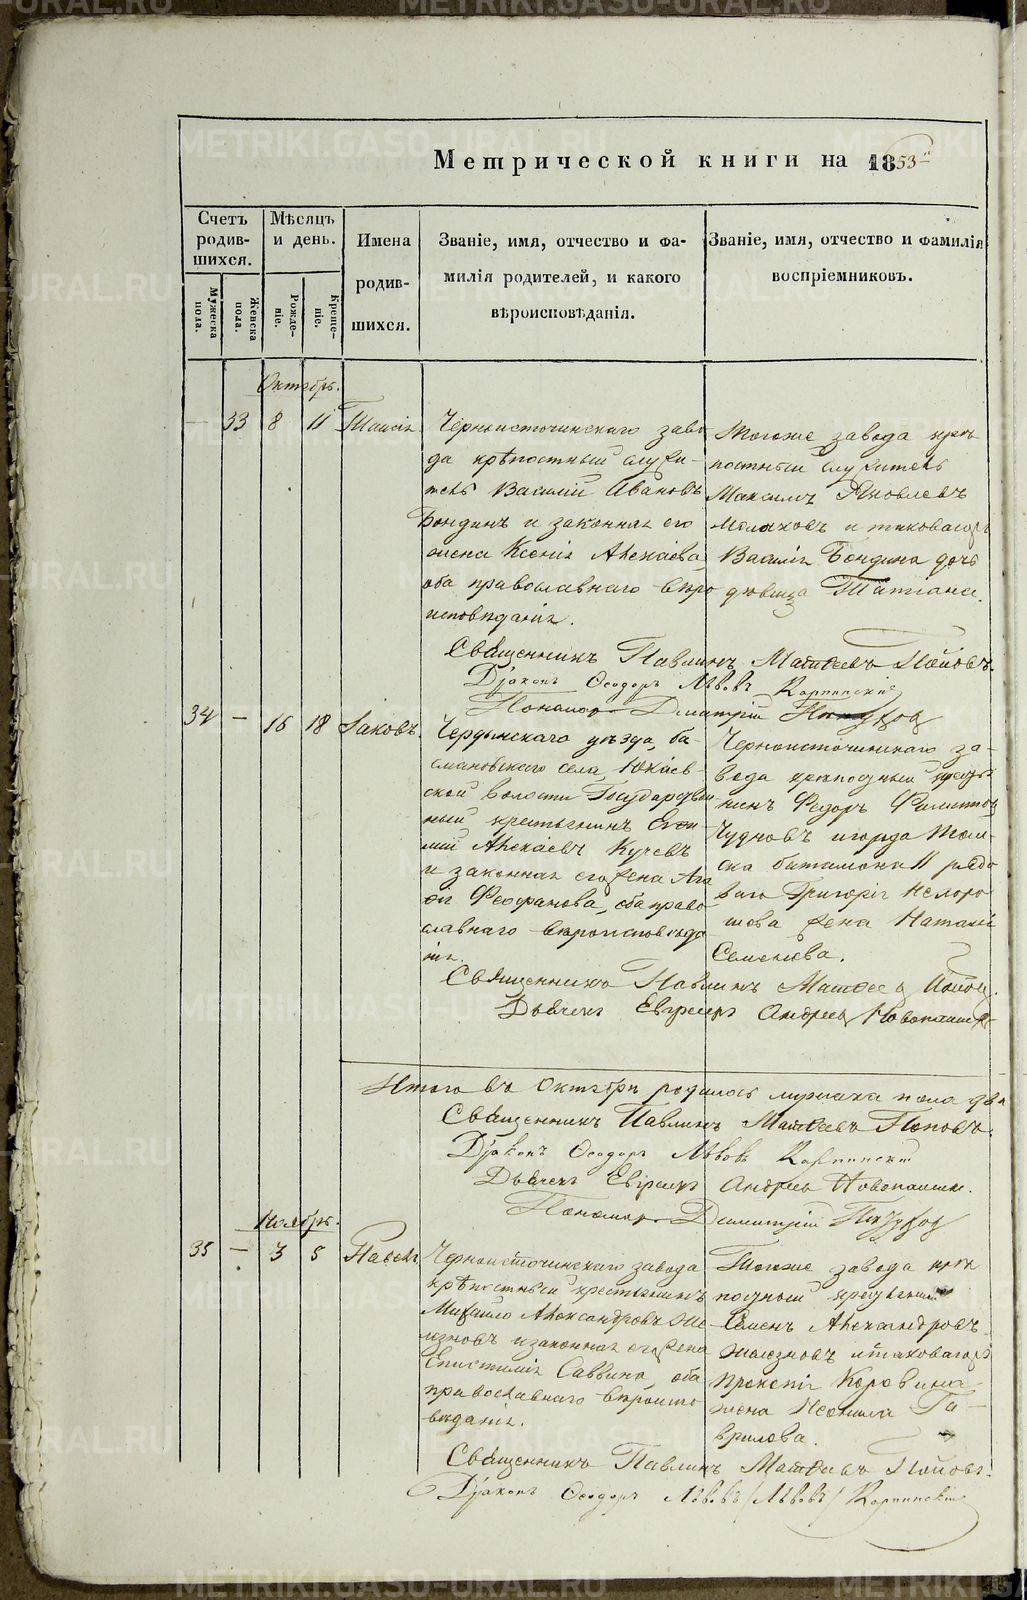 Метрической книги на 1853й
Счетъ родившихся.
Мѣсяцъ и день.
Имена родившихся.
Званіе, имя, отчество и фамилія родителей, и какого вѣроисповѣданія.
Званіе, имя, отчество и фамилія воспріемниковъ.
Мужеска пола.
Женска пола.
Рожденіе.
Крещеніе.
Октябрь.
— 33 8 11 Таисія
Черноисточинскаго заво
да крѣпостный служи-
тель Василій Ивановъ
Бондинъ и законная его
жена Ксенія Алексѣева
оба православнаго вѣро
исповѣданія.
Тогоже завода крѣ
постный служитель
Максимъ Яковлевъ
Малаховъ и таковагожъ
Василія Бондина дочь
дѣвица Татіана.
Священникъ Павлинъ Матѳеевъ Поповъ.
Діаконъ Ѳеодоръ Львовъ Карпинскій
Пономарь Димитрій
34 — 16 18 Іаковъ.
Чердынскаго уѣзда,
села, Юксѣев
ской волости Государствен
ный крестьянинъ
Алексѣевъ
и законная его жена Ага
Феофанова, оба право
славнаго вѣроисповѣда
нія.
Черноисточинскаго за-
вода крѣпостный крестья
нинъ Федоръ
Чудновъ и города Том-
ска баталіона рядо
ваго Григорія Нехоро
шева жена Наталія
Семенова.
Священникъ Павлинъ Матѳеевъ Поповъ.
Дьячекъ Евгений Андреевъ Новопашинъ
Итого въ Октябрѣ родилось мужеска пола два
Священникъ Павлинъ Матѳеевъ Поповъ.
Діаконъ Ѳеодоръ Львовъ Карпинскій
Дьячекъ Евгений Андреевъ Новопашинъ.
Пономарь Димитрій
Ноябрь.
35 — 3 5 Павелъ
Черноисточинскаго завода
крѣпостный крестьянинъ
Михайло Александровъ Же
лезновъ и законная его жена
Епистимія Саввина, оба
православнаго вѣроиспо
вѣданія.
Тогоже завода крѣ
постный крестьянинъ
Семенъ Александровъ
Железновъ и таковагожъ
Прокопія Коровина
жена Неонила Га-
врилова.
Священникъ Павлинъ Матѳеевъ Поповъ.
Діаконъ Ѳеодоръ Львовъ /Львовъ/ Карпинскій
METRIKI.GASO-URAL.RU